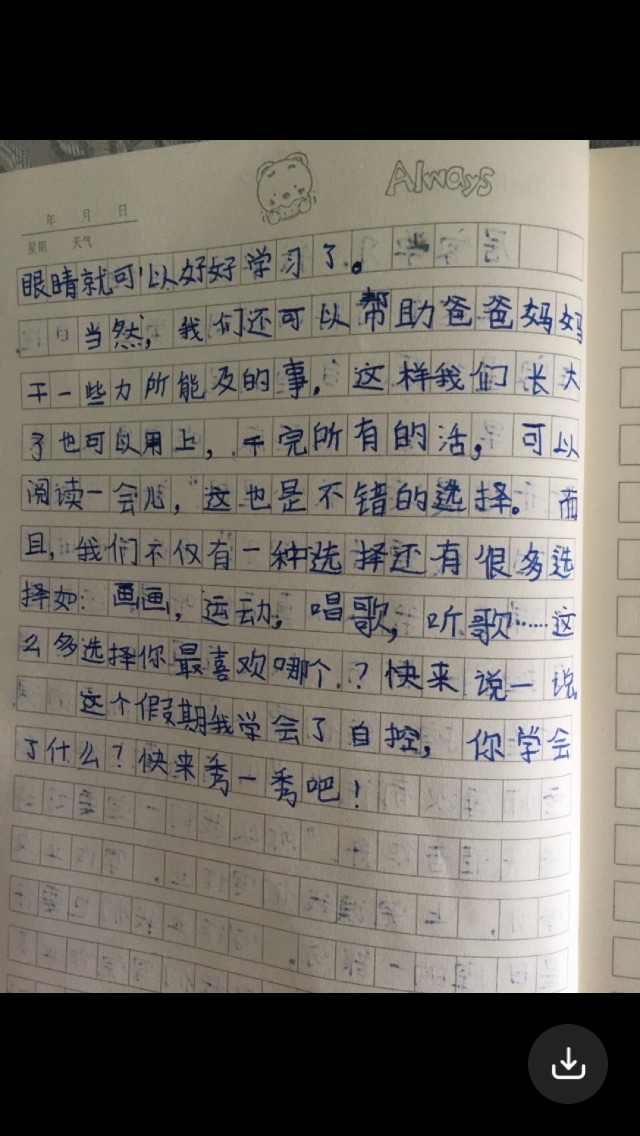 Always
年 月 日
星期 天气
眼睛就可以好好学习了。
当然，我们还可以帮助爸爸妈妈
干一些力所能及的事，这样我们长大
了也可以用上，干完所有的活，可以
阅读一会儿，这也是不错的选择。而
且，我们不仅有一种选择还有很多选
择如：画画，运动，唱歌，听歌……这
么多选择你最喜欢哪个？快来说一说。
这个假期我学会了自控，你学会
了什么？快来秀一秀吧！